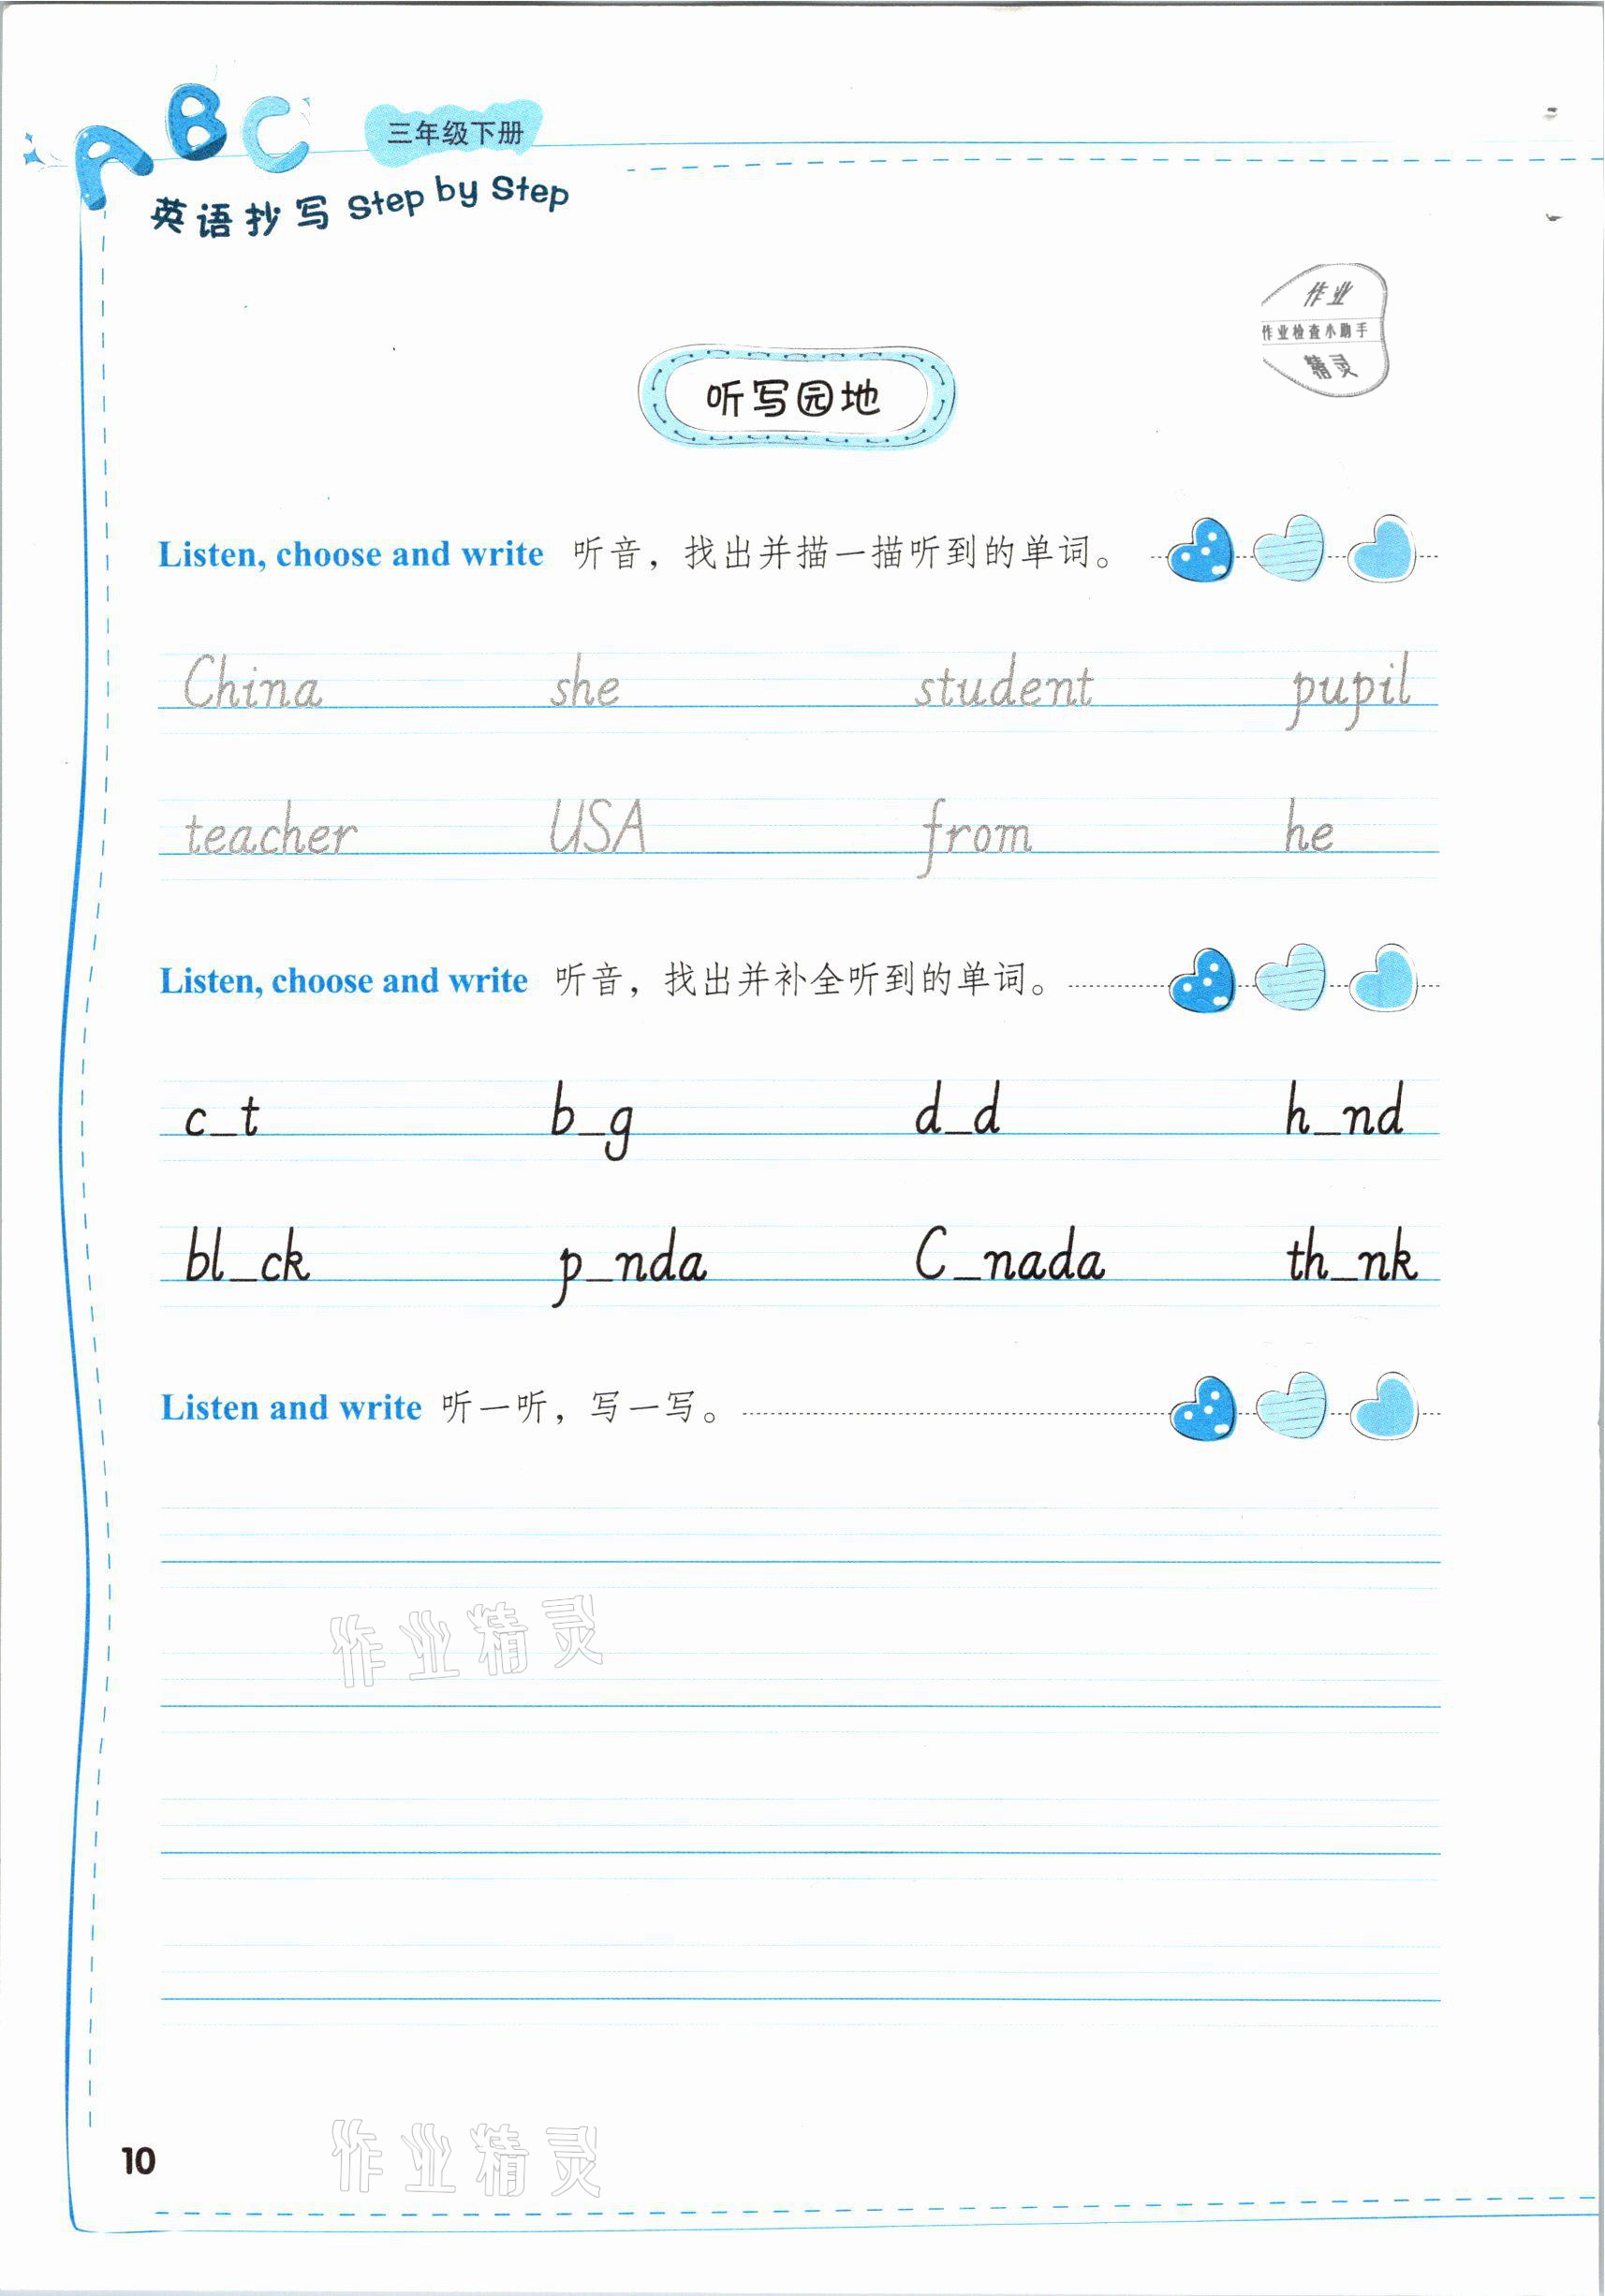 ABC
三年级下册
英语抄写 Step by Step
作业
作业检查小助手
精灵
听写园地
Listen, choose and write 听音，找出并描一描听到的单词。
China she student pupil
teacher USA from he
Listen, choose and write 听音，找出并补全听到的单词。
c_t b_g d_d h_nd
bl_ck p_nda C_nada th_nk
Listen and write 听一听，写一写。
作业精灵
作业精灵
10